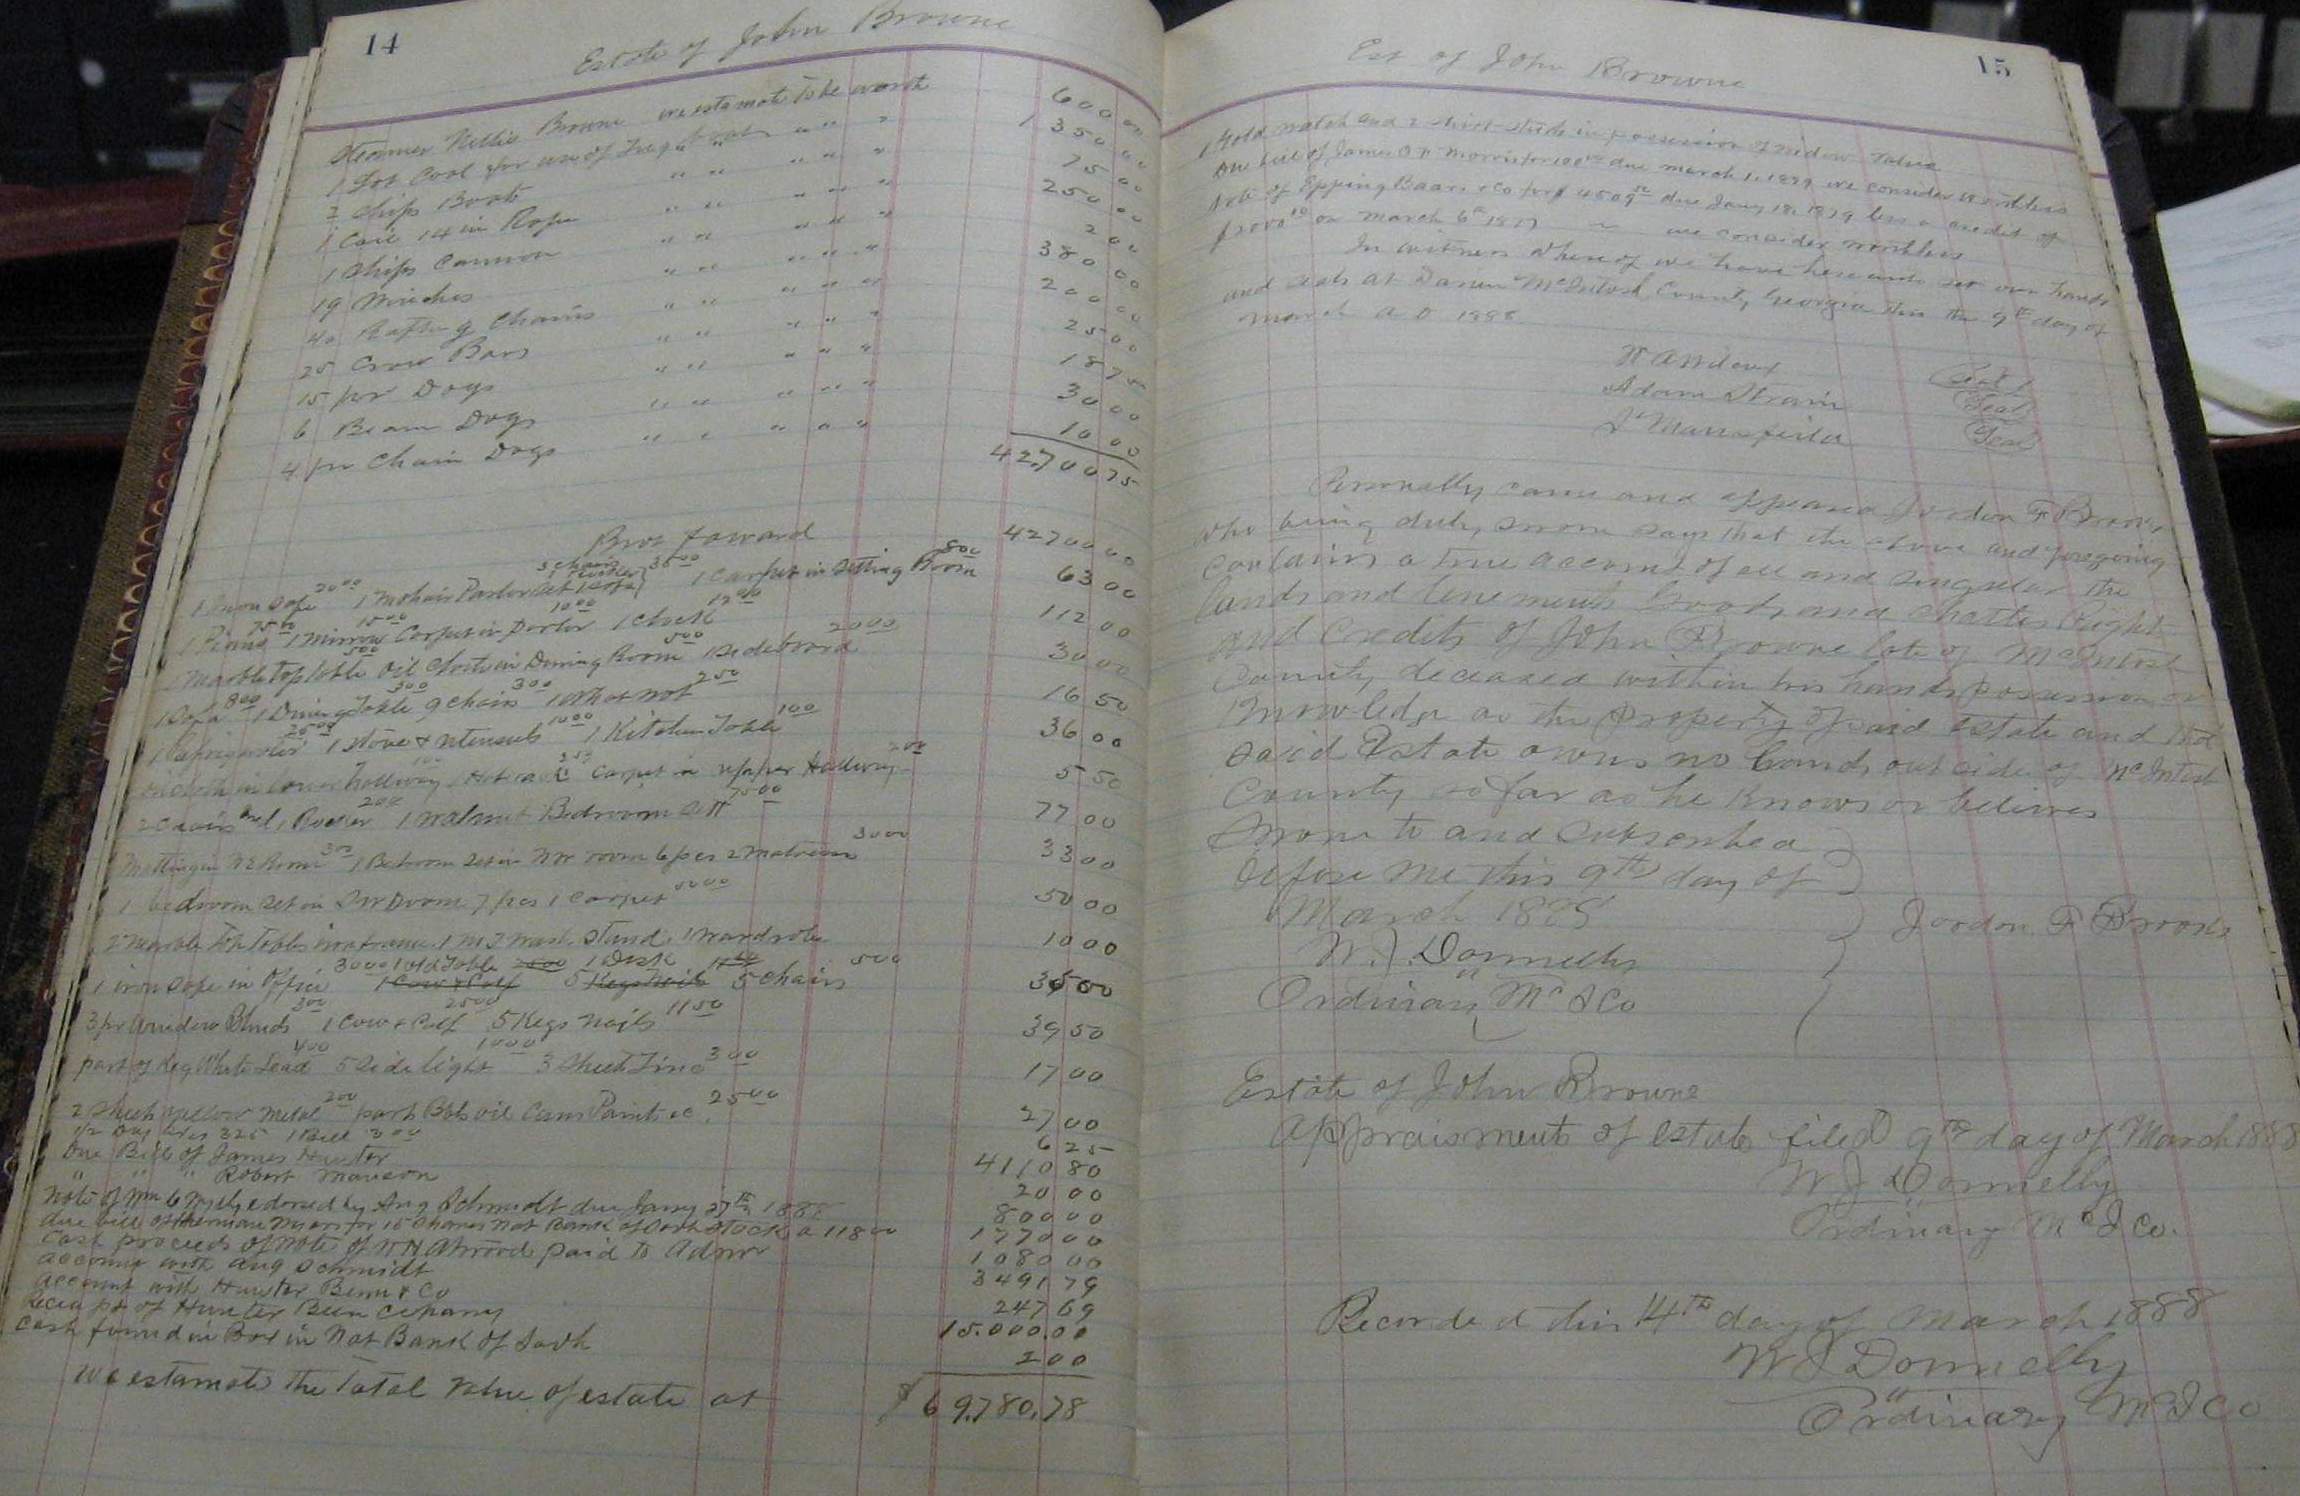 14
Estate of John Browne
Steamer Nellie Browne we estamate to be worth 600 00
1 Lot Cool for use of " " " " " 1 350 00
2 Ships Boats " " " " " 75 00
1 Coil 14 in Rope " " " " " 250 00
1 Ships Cannon " " " " " 2 00
19 Winches " " " " " 380 00
40 Rafting Chains " " " " " 20 00
25 Crow Bars " " " " " 25 00
15 pr Dogs " " " " " 18 75
6 Beam Dogs " " " " " 30 00
4 pr Chain Dogs " " " " " 10 00
42,700 75
Brot Foward 42700 00
1 Iron Safe 20 00 1 Mohair Parlor Set 3 chairs 1 Sofa 35 00 1 Carpet in Sitting Room 8 00 63 00
1 Piano 75 00 1 Mirror 15 00 Carpet in Parlor 10 00 1 Clock 12 00 112 00
1 Marble top table 5 00 Oil Cloth in Dining Room 5 00 1 Sideboard 20 00 30 00
1 Sofa 8 00 1 Dining Table 3 00 9 chairs 3 00 1 What not 2 50 16 50
1 Refrigerator 25 00 1 stove & utensuls 10 00 1 Kitchen Table 1 00 36 00
oil cloth in lower hallway 1 00 Hat rack 2 50 Carpet in upper Hallway 2 00 5 50
2 Chairs and 1 Rocker 2 00 1 walnut Bedroom Sett 75 00 77 00
Matting in NE Room 3 00 1 Bedroom set in NW room 6 pcs 2 Matresses 30 00 33 00
1 bedroom set in SW Room 7 pcs 1 Carpet 50 00 50 00
2 Marble Top Tables 1 M T Wash Stand 1 Wardrobe 10 00
1 iron safe in Office 30 00 1 old Table 1 Desk 1 Cow & Calf 25 00 5 Kegs Nails 5 chairs 5 00 35 00
3 pr Window Blinds 3 00 1 Cow & Calf 25 00 5 Kegs Nails 11 50 39 50
part of Keg White Lead 4 00 5 Side light 10 00 3 Sheet Zinc 3 00 17 00
2 Sheets yellow Metal 2 00 part Bbls oil Cans Paint &c 25 00 27 00
1/2 3 25 1 Bell 3 00 6 25
Due Bill of James Hunter 4110 80
" " " Robert Manson 20 00
Note of Wm edorsed by Aug Schmidt due Jany 27th 1888 800 00
due bill of Herman Myers for 15 Shares Nat Bank of Savh Stock a 118 00 1770 00
Cash proceeds of Note of W H Atwood paid to Admr 1080 00
account with Aug Schmidt 3491 79
account with Hunter Benn & Co 247 69
Receipt of Hunter Benn Company 15.000.00
Cash found in Box in Nat Bank of Savh 2 00
We estamate the Total Value of estate at $69,780.78
Est of John Browne
15
1 Gold watch and 2 shirt studs in possession of Widow Value
Due bill of James O F Morris for 100 00 due March 1, 1879 we consider worthless
Note of Epping Baars & Co for $ due Jany 18, 1879 less a credit of
on March 6th 18 we consider worthless
In witness Whereof we have hereunto set our hands
and seals at Darien McIntosh County Georgia this the 9th day of
March A D 1888
Seal
Adam Strain Seal
J Mansfield Seal
Personally came and appeared Jordon F Brooks
who being duly sworn says that the above and foregoing
contains a true account of all and singular the
lands and tenements Goods and Chattles Rights
and Credits of John Browne late of McIntosh
County deceased within his hands possession or
Knowledge as the property of said Estate and that
said Estate owns no lands outside of McIntosh
County so far as he Knows or believes
Sworn to and subscribed
before me this 9th day of
March 1888 Jordon F Brooks
W. J. Donnelly
Ordinary McI Co
Estate of John Browne
Appraisment of estate filed 9th day of March 1888
W J Donnelly
Ordinary McI Co.
Recorded this 14th day of March 1888
W J Donnelly
Ordinary McI Co